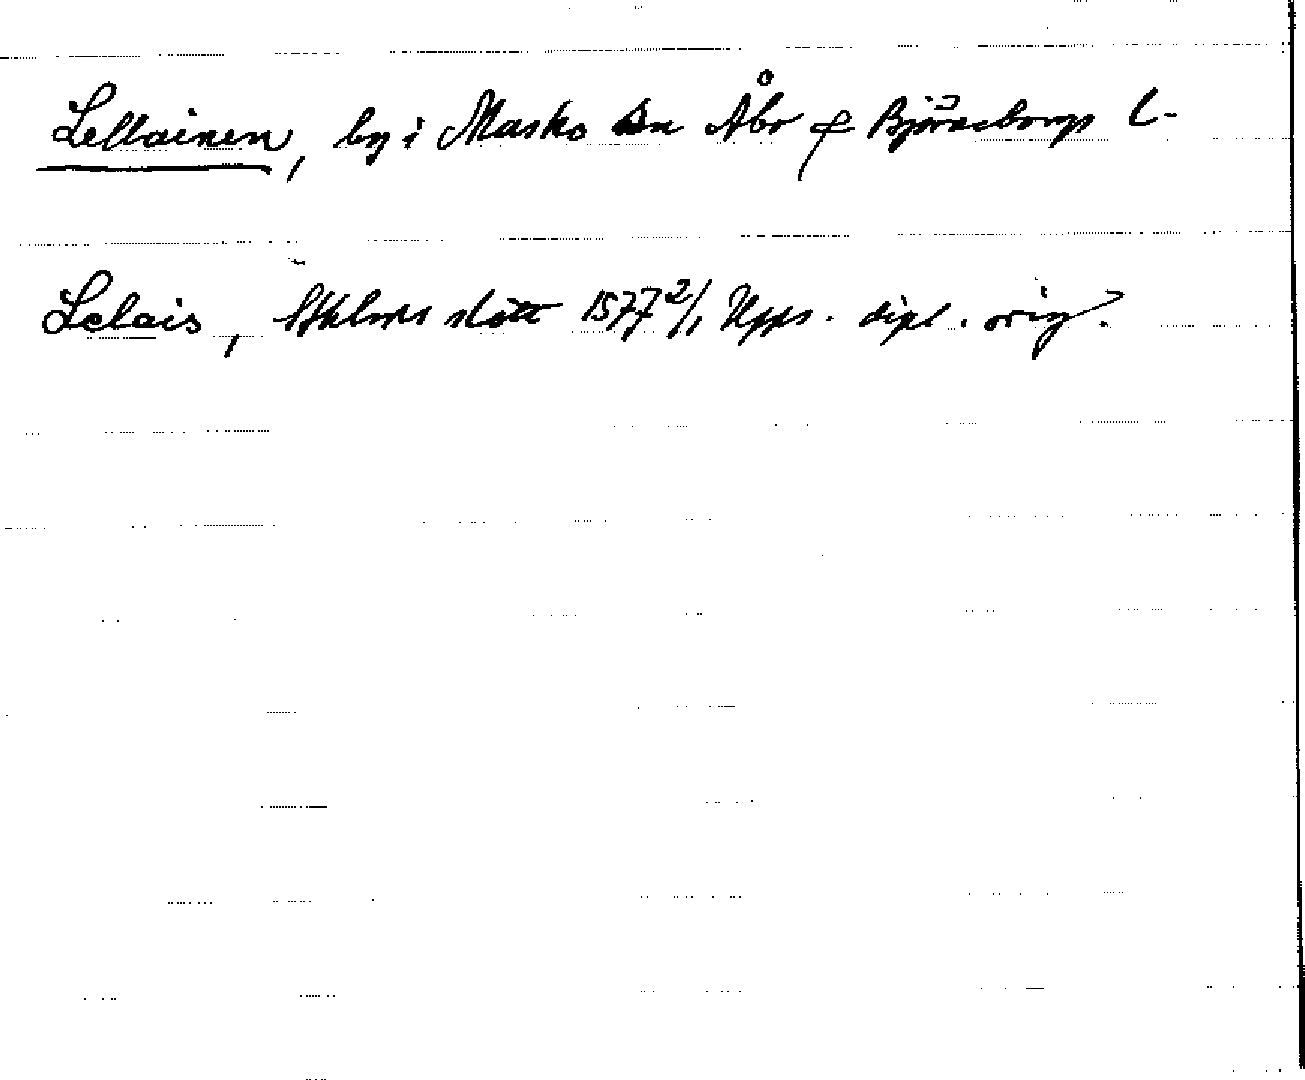 Lellainen, by i Masko sn Åbo & Björneborgs l.
Lelais, Sthlms slott 1577 2/1 Upps. dipl. orig.